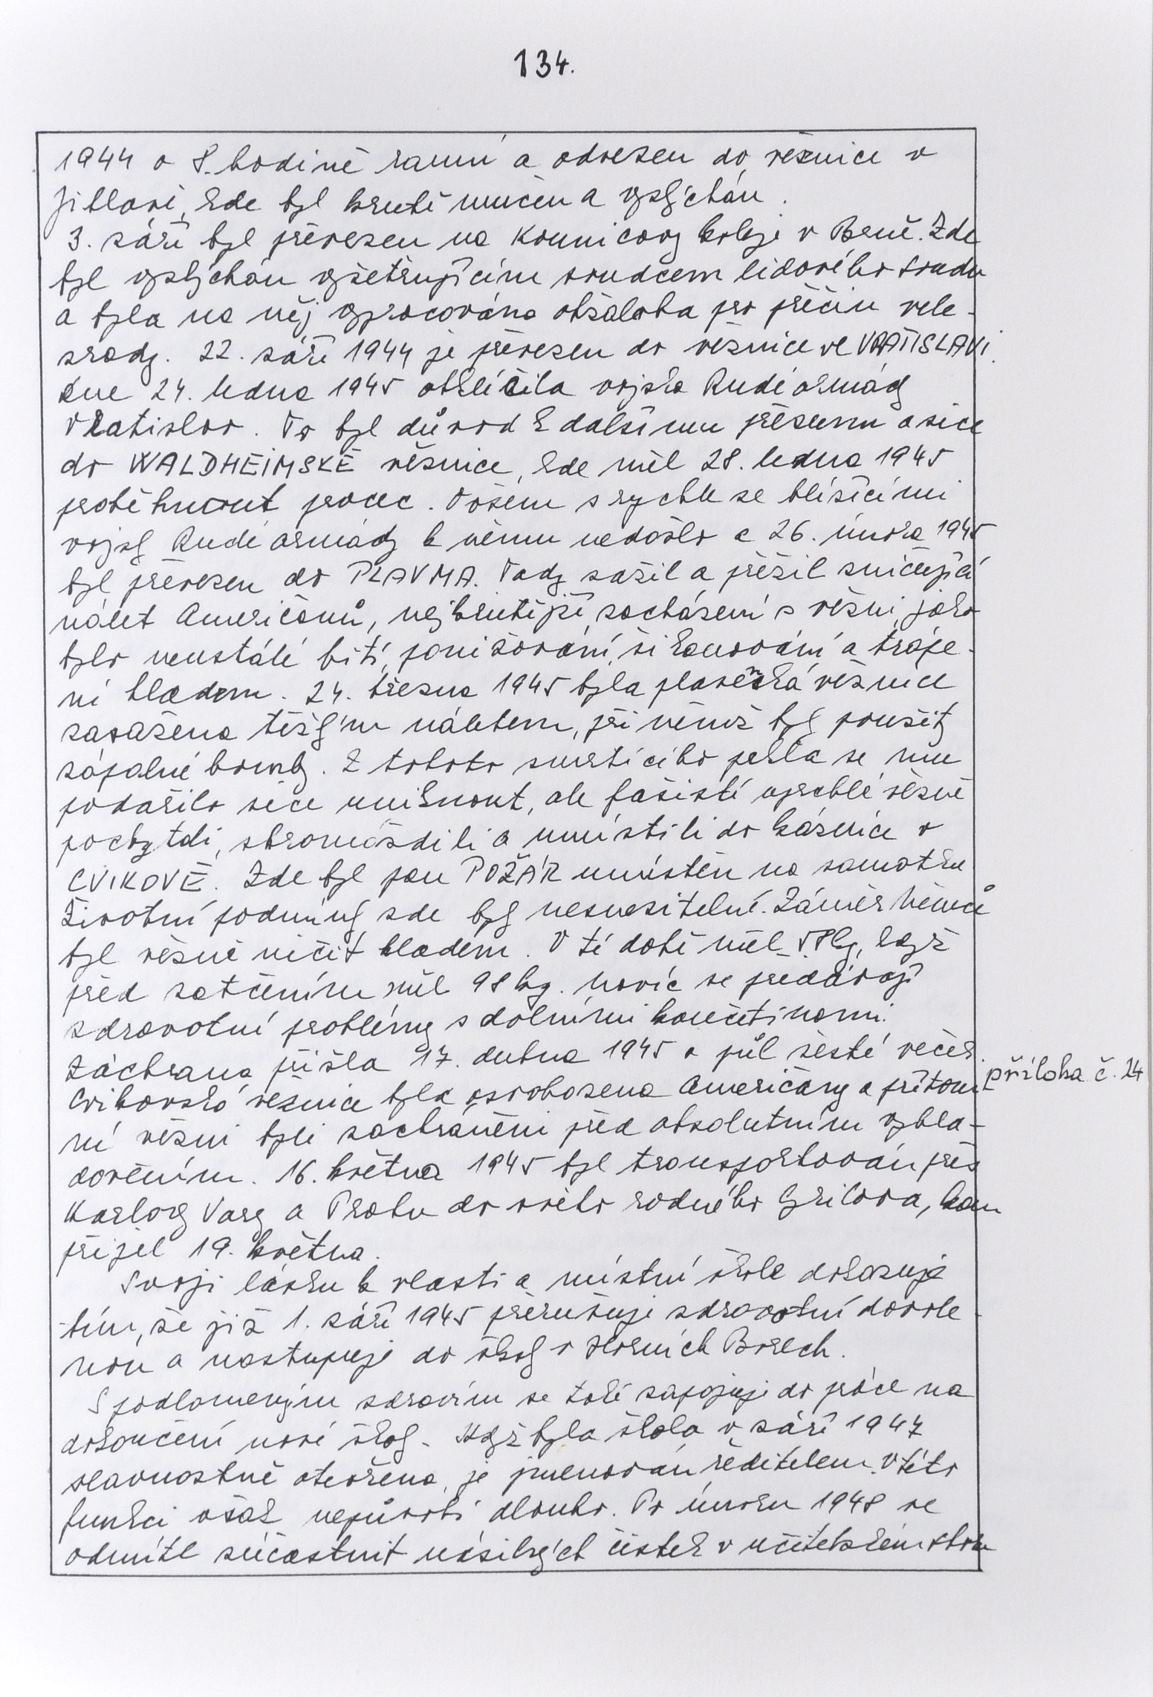 134.
1944 o 8. hodině ranní a odvezen do věznice v
Jihlavě, kde byl krutě mučen a vyslýchán.
3. září byl převezen na Kounicovy koleje v Brně. Zde
byl vyslýchán vyšetřujícím soudcem lidového soudu
a byla na něj vypracována obžaloba pro přečin vele-
zrady. 22. září 1944 je převezen do věznice ve VRATISLAVI.
Dne 24. ledna 1945 obklíčila vojska Rudé armády
Vratislav. To byl důvod k dalšímu přesunu a sice
do WALDHEIMSKÉ věznice, kde měl 28. ledna 1945
proběhnout proces. Ovšem s rychle se blížícími
vojsky Rudé armády k němu nedošlo a 26. února 1945
byl převezen do PLAVMA. Tady zažil a přežil zničující
nálet Američanů, nejkrutější zacházení s vězni, jako
bylo neustálé bití, ponižování, šikanování a trápe-
ní hladem. 24. března 1945 byla plavenská věznice
zasažena těžkým náletem, při němž byly použity
zápalné bomby. Z tohoto smrtícího pekla se mu
podařilo sice uniknout, ale fašisté uprchlé vězně
pochytali, shromáždili a umístili do káznice v
CVIKOVĚ. Zde byl pan POŽÁR umístěn na samotku.
Životní podmínky zde byly nesnesitelné. Záměr Němců
byl vězně ničit hladem. V té době měl 58 kg, když
před zatčením měl 98 kg. Navíc se předávají
zdravotní problémy s dolními končetinami.
Záchrana přišla 17. dubna 1945 o půl šesté večer.
Cvikovská věznice byla osvobozena Američany a přítom-
ní vězni byli zachráněni před absolutním vyhla-
dověním. 16. května 1945 byl transportován přes
Karlovy Vary a Prahu do svého rodného Křikova, kam
přijel 19. května.
Svoji lásku k vlasti a místní škole dokazuje
tím, že již 1. září 1945 přerušuje zdravotní dovole-
nou a nastupuje do školy v Horních Borech.
S podlomeným zdravím se také zapojuje do práce na
dokončení nové školy. Když byla škola v září 1947
slavnostně otevřena, je jmenován ředitelem. V této
funkci však nepůsobí dlouho. Po únoru 1948 se
odmítl súčastnit násilných čistek v učitelském sboru
příloha č. 24